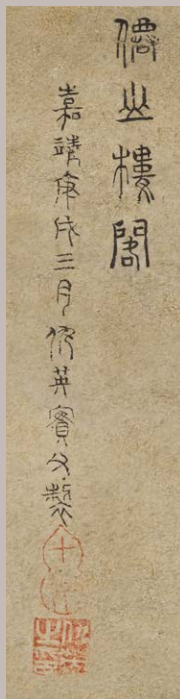 僊山樓閣
嘉靖庚戌三月仇英實父製
十洲
仇英之印